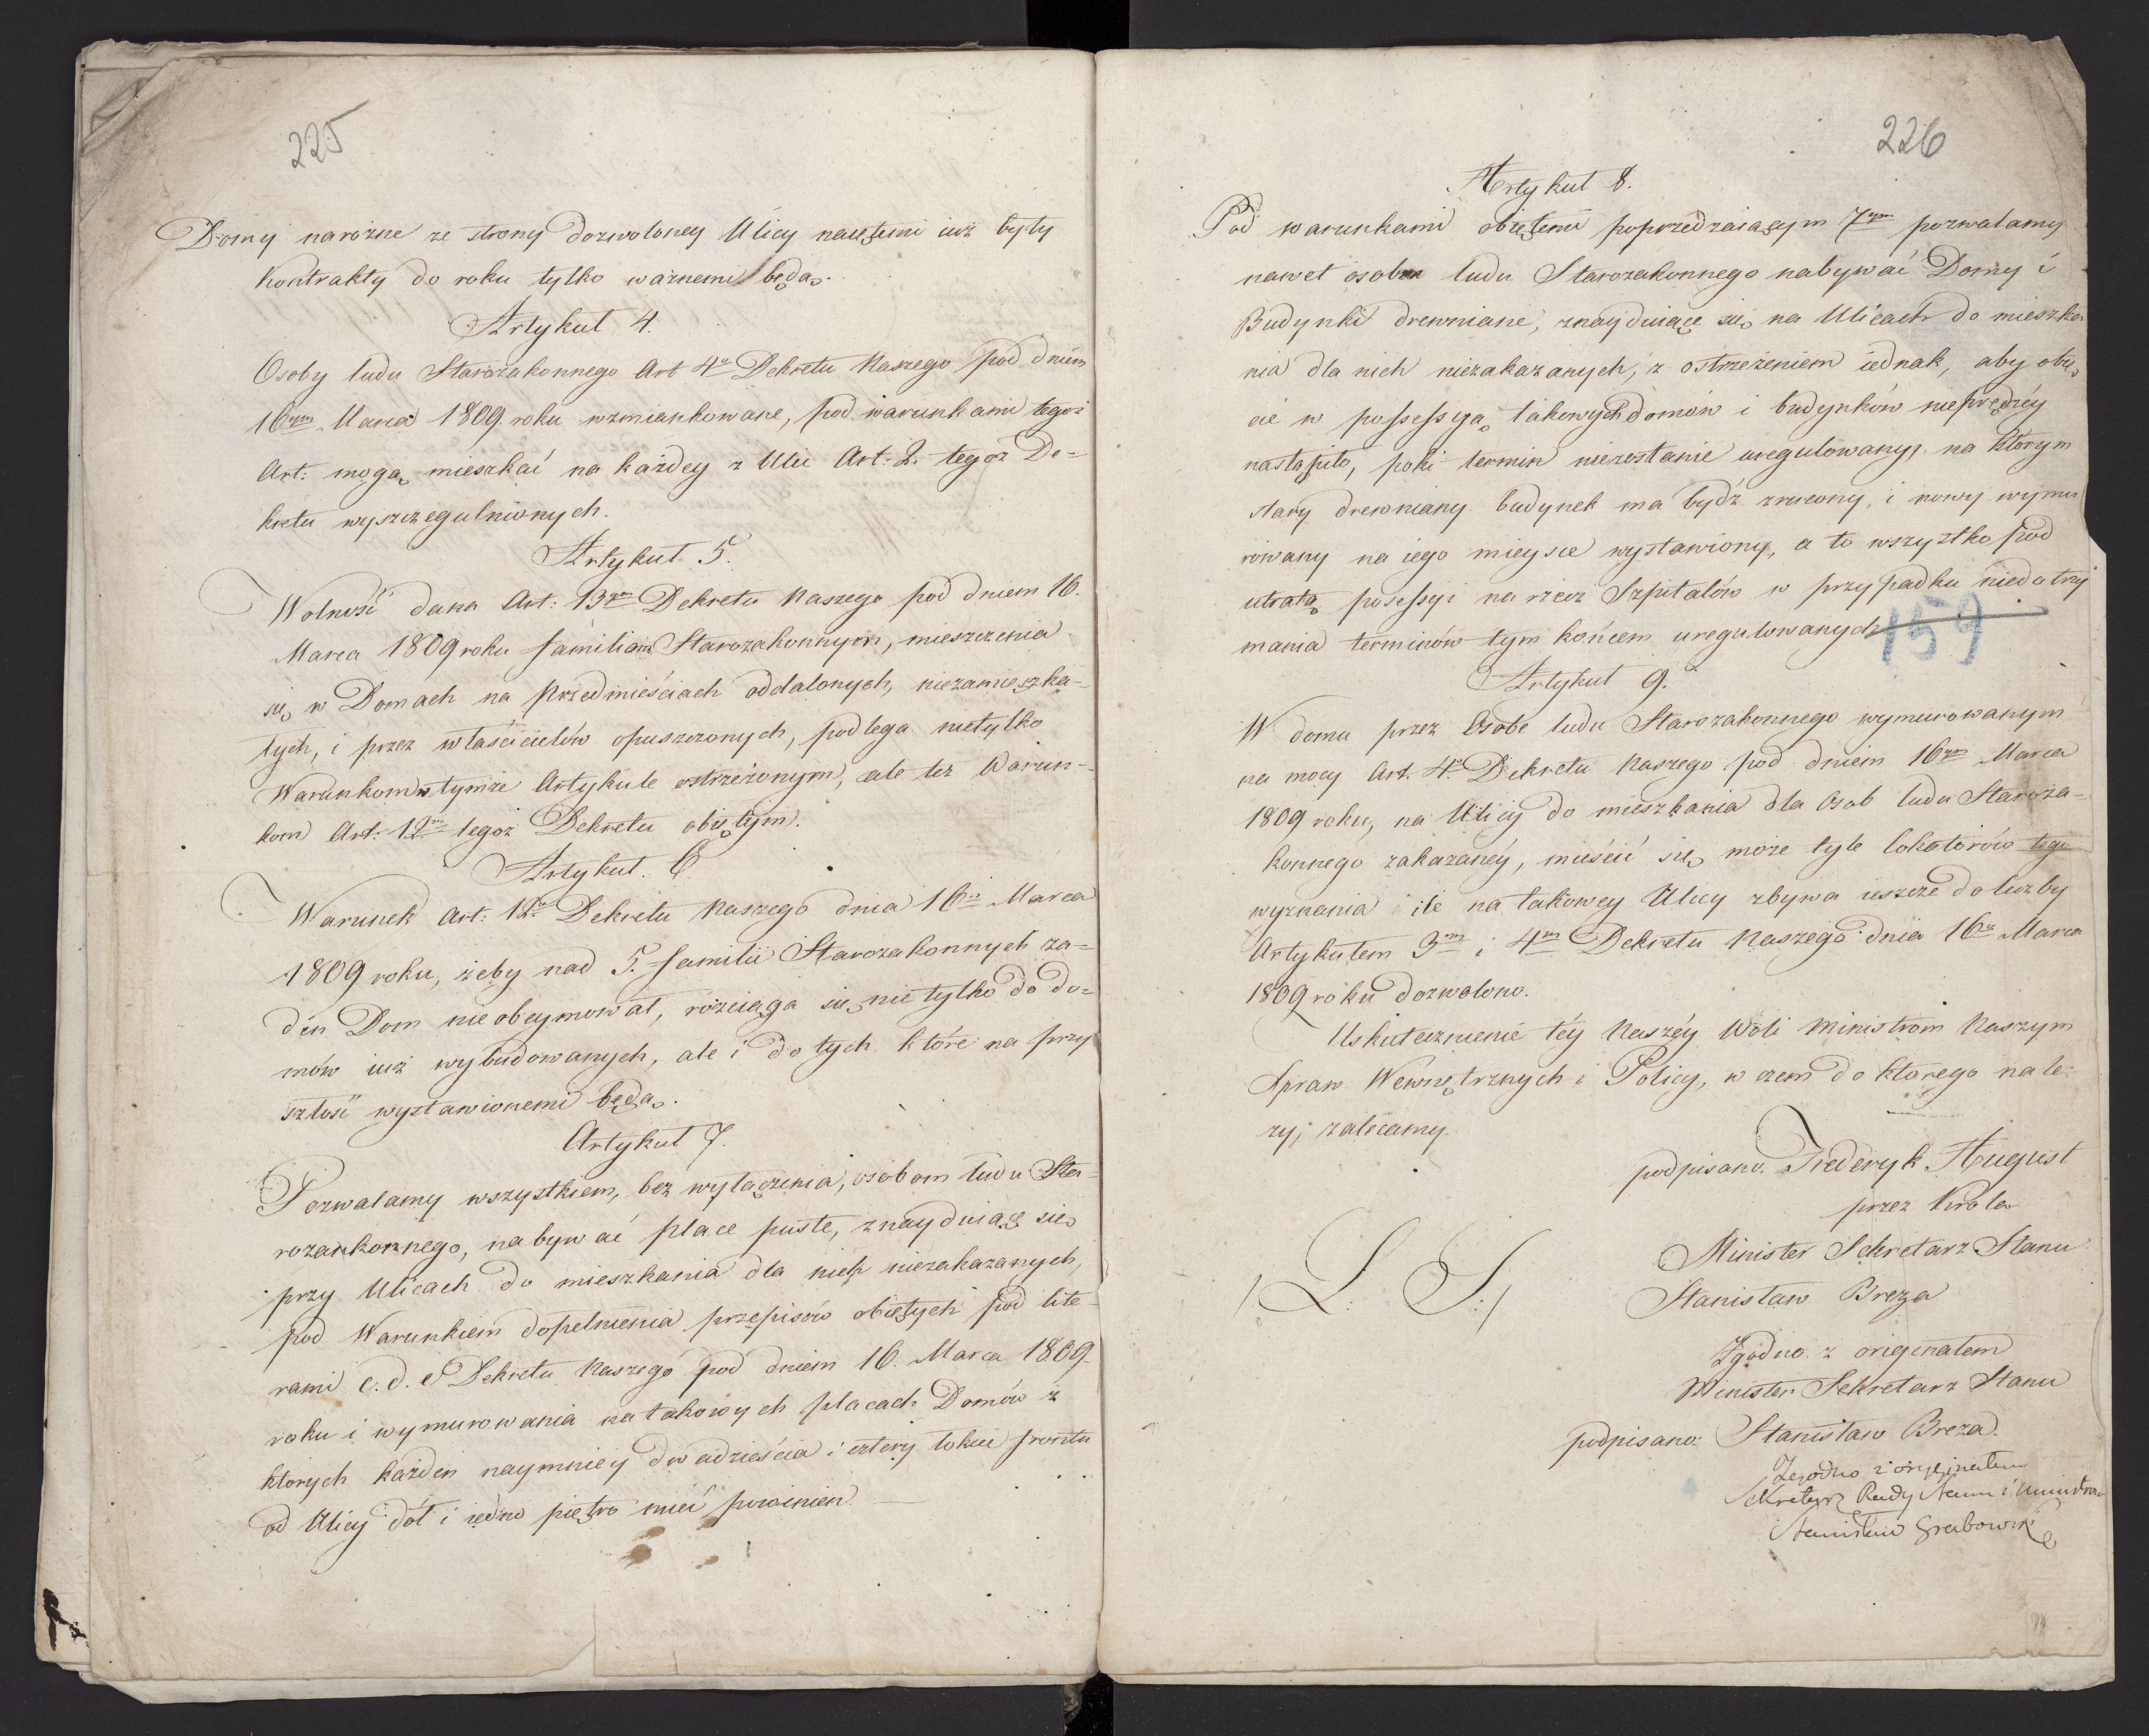 225
Domy narożne ze strony dozwoloney Ulicy naięteni iuż były
Kontrakty do roku tylko ważnemi będą.
Artykuł 4.
Osoby ludu Starozakonnego Art 4º Dekretu Naszego pod dniem
16ym Marca 1809. roku wzmiankowane, pod warunkami tegoż
Art: mogą mieszkać na każdey z Ulic Art: 2. tegoż De-
kretu wyszczegulnionych.
Artykuł 5.
Wolność dana Art: 13ym Dekretu Naszego pod dniem 16.
Marca 1809 roku familiom Starozakonnym, mieszczenia
się w Domach na Przedmieściach oddalonych, niezamieszka-
łych, i przez właścicielów opuszczonych, podlega nietylko
Warunkom w tymże Artykule ostrzeżonym, ale też Warun-
kom Art: 12m tegoż Dekretu obiętym.
Artykuł. 6.
Warunek Art: 12º Dekretu Naszego dnia 16º Marca
1809 roku, żeby nad 5. familii Starozakonnych ża-
den Dom nie obeymował, rozciąga się nie tylko do do-
mów iuż wybudowanych, ale i do tych które na przy
szłość wystawionemi będą.
Artykuł 7.
Pozwalamy wszystkiem, bez wyłączenia, osobom ludu Sta-
rozankonnego, nabywać place puste, znayduiące się
przy Ulicach do mieszkania dla nich niezakazanych,
pod Warunkiem dopełnienia przepisów obiętych pod lite-
rami c. d. e Dekretu Naszego pod dniem 16. Marca 1809
roku i wymurowania na takowych placach Domów z
ktorych każden naymniey dwadzieścia i cztery łokci frontu
od Ulicy dół i iedno piętro mieć powinien.
226
Artykuł 8.
Pod warunkami obiętemi poprzedzaiącym 7ym pozwalamy
nawet osobom ludu Starozakonnego nabywać Domy i
Budynki drewniane, znayduiące się na Ulicach do mieszka
nia dla nich niezakazanych, z ostrzeżeniem iednak, aby obię
cie w possessyą takowych domów i budynków nieprędzéy
nastąpiło, poki termin niezostanie uregulowany, na którym
stary drewniany budynek ma bydź zrucony, i nowy wymu
rowany na iego mieysce wystawiony, a to wszystko pod
utratą posessyi na rzecz Szpitalów w przypadku niedotrzy
mania terminów tym końcem uregulowanych
159
Artykuł 9.
W domu przez Osobe ludu Starozakonnego wymurowanym
na mocy Art. 4º Dekretu Naszego pod dniem 16ym Marca
1809 roku, na Ulicy do mieszkania dla Osob ludu Staroza-
konnego zakazanéy, mieścić się może tyle lokatorów tego
wyznania ile na takowey Ulicy zbywa ieszcze do liczby
Artykułem 3m i 4m Dekretu Naszego dnia 16º Marca
1809 roku dozwolono.
Uskutecznienie téy Naszéy Woli Ministrom Naszym
Spraw Wewnętrznych i Policy, w czem do ktorego nale-
ży, zalecamy.
podpisano. Frederyk August
przez Krola
Minister Sekretarz Stanu
/L: S:/
Stanisław Breza
Zgodno z originałem
Minister Sekretarz Stanu
podpisano: Stanisław Breza.
Zgodno z oryginałem
Sekretarz Rady Stanu i Ministrow
Stanisław Grabowski